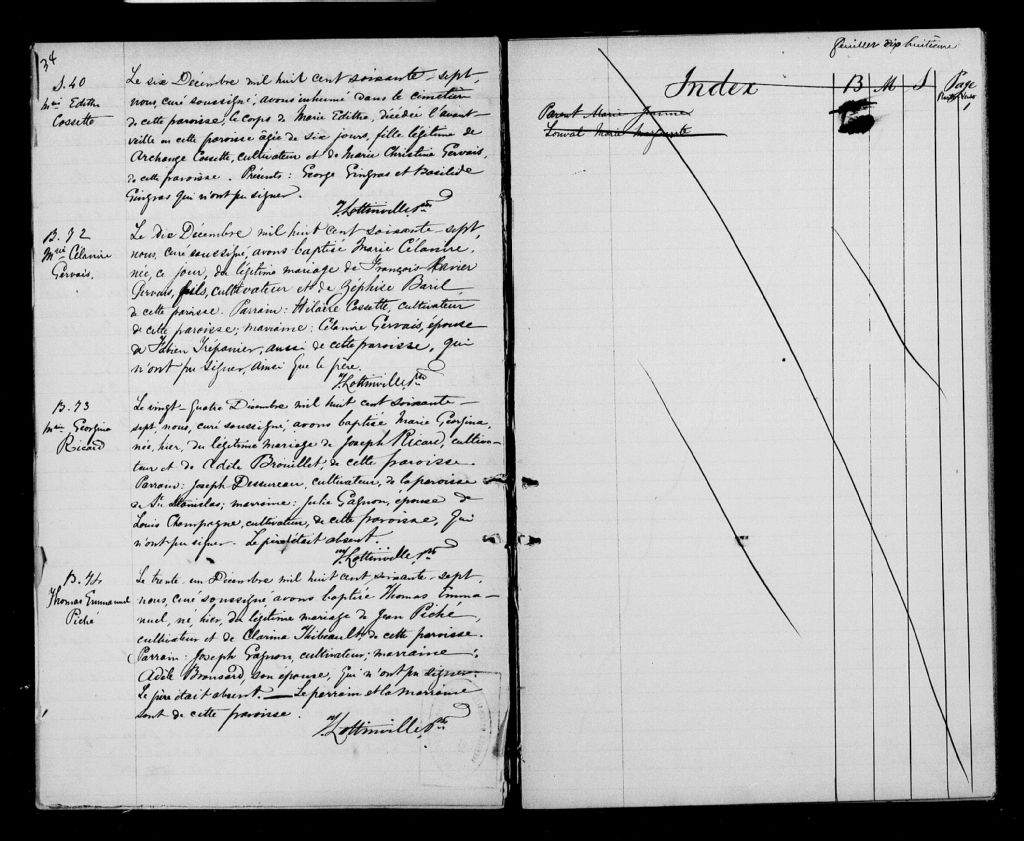 34
S. 40
Mie Editha
Cossette
Le six Décembre mil huit cent soixante-sept,
nous, curé soussigné, avons inhumé dans le cimetière
de cette paroisse, le corps de Marie Editha, décédée l'avant-
veille en cette paroisse âgée de six jours, fille légitime de
Archange Cossette, cultivateur et de Marie Christine Gervais,
de cette paroisse. Présents: George Gingras et Basilide
Gingras qui n'ont pu signer.
Lottinville, Ptre
B. 72
Mie Célanire
Gervais.
Le dix Décembre mil huit cent soixante-sept,
nous, curé soussigné, avons baptisé Marie Célanire,
née, ce jour, du légitime mariage de François Xavier
Gervais, fils, cultivateur et de Zéphise Baril,
de cette paroisse. Parrain: Hilaire Cossette, cultivateur
de cette paroisse; marraine: Célanire Gervais, épouse
de Fabien Trépanier, aussi de cette paroisse, qui
n'ont pu signer, ainsi que le père.
Lottinville, Ptre
B. 73
Mie Georgina
Ricard
Le vingt-quatre Décembre mil huit cent soixante-
sept, nous, curé soussigné, avons baptisé Marie Georgina,
née, hier, du légitime mariage de Joseph Ricard, cultiva-
teur et de Adèle Brouillet, de cette paroisse.
Parrain: Joseph Dessureau, cultivateur, de la paroisse
de St. Stanislas; marraine: Julie Gagnon, épouse de
Louis Champagne, cultivateur, de cette paroisse, qui
n'ont pu signer. Le père était absent.
Lottinville, Ptre
B. 74
Thomas Emmanuel
Piché
Le trente-un Décembre mil huit cent soixante-sept,
nous, curé soussigné avons baptisé Thomas Emma-
nuel, né, hier, du légitime mariage de Jean Piché,
cultivateur et de Clarina Thibeault, de cette paroisse.
Parrain: Joseph Gagnon, cultivateur; marraine:
Adèle Brousard, son épouse, qui n'ont pu signer.
Le père était absent. — Le parrain et la marraine
sont de cette paroisse.
Lottinville, Ptre
feuillet dix huitième
Index B M S Page
Parent Marie 1
Marie